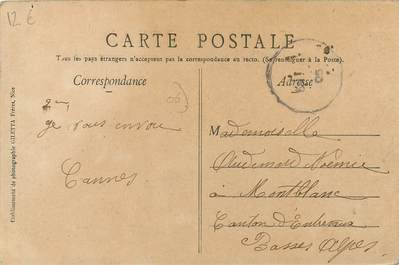 12 €
CARTE POSTALE
Tous les pays étrangers n'acceptent pas la correspondance au recto. (Se renseigner à la Poste).
Correspondance
Adresse
06
je vous envoie
Cannes
Mademoiselle
Audemard Noémie
à Montblanc
Canton d'Entrevaux
Basses Alpes
Etablissements de photographie GILETTA Frères, Nice